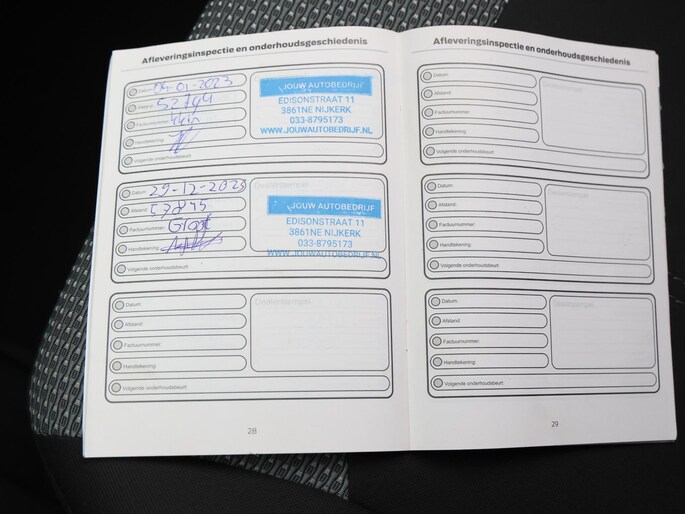 Afleveringsinspectie en onderhoudsgeschiedenis
Datum: 04-01-2023
Afstand:
Factuurnummer:
Handtekening:
Volgende onderhoudsbeurt
JOUW AUTOBEDRIJF
EDISONSTRAAT 11
3861NE NIJKERK
033-8795173
WWW.JOUWAUTOBEDRIJF.NL
Datum: 29-12-2023
Afstand: 57845
Factuurnummer: Groot
Handtekening:
Volgende onderhoudsbeurt
Dealerstempel
JOUW AUTOBEDRIJF
EDISONSTRAAT 11
3861NE NIJKERK
033-8795173
WWW.JOUWAUTOBEDRIJF.NL
Datum:
Afstand:
Factuurnummer:
Handtekening:
Volgende onderhoudsbeurt
Dealerstempel
28
Afleveringsinspectie en onderhoudsgeschiedenis
Datum:
Afstand:
Factuurnummer:
Handtekening:
Volgende onderhoudsbeurt
Dealerstempel
Datum:
Afstand:
Factuurnummer:
Handtekening:
Volgende onderhoudsbeurt
Dealerstempel
Datum:
Afstand:
Factuurnummer:
Handtekening:
Volgende onderhoudsbeurt
Dealerstempel
29